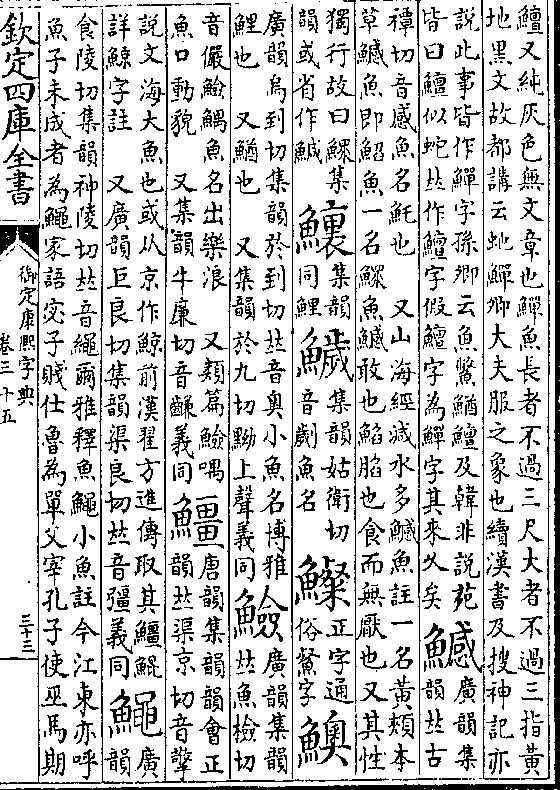 鱣又純灰色無文章也鱓魚長者不過三尺大者不過三指黃
地黑文故都講云虵鱓卿大夫服之象也續漢書及搜神記亦
說此事皆作鱓字孫卿云魚鱉鰌鱣及韓非說苑
皆曰鱣似蛇𠀤作鱣字假鱣字為鱓字其來久矣
鱤
廣韻集
韻𠀤古
禫切音感魚名魠也 又山海經減水多鱤魚註一名黃頰本
草鱤魚即䱤魚一名鰥魚鱤敢也䱤䐄也食而無厭也又其性
獨行故曰鰥集
韻或省作鰔
集韻
同鯉
鱥
集韻姑衛切
音劌魚名
正字通
俗字
廣韻烏到切集韻於到切𠀤音奧小魚名博雅
鯉也 又鰌也 又集韻於九切黝上聲義同
廣韻集韻
𠀤魚檢切
音儼鰅魚名出樂浪 又類篇喁
魚口動貌 又集韻牛廉切音義同
䲔
唐韻集韻韻會正
韻𠀤渠京切音擎
說文海大魚也或从京作鯨前漢翟方進傳取其䲔鯢
詳鯨字註 又廣韻巨良切集韻渠良切𠀤音彊義同
鱦
廣
韻
食陵切集韻神陵切𠀤音繩爾雅釋魚鱦小魚註今江東亦呼
魚子未成者為鱦家語宓子賤仕魯為單父宰孔子使巫馬期
欽定四庫全書
御定康熙字典
卷三十五
三十三